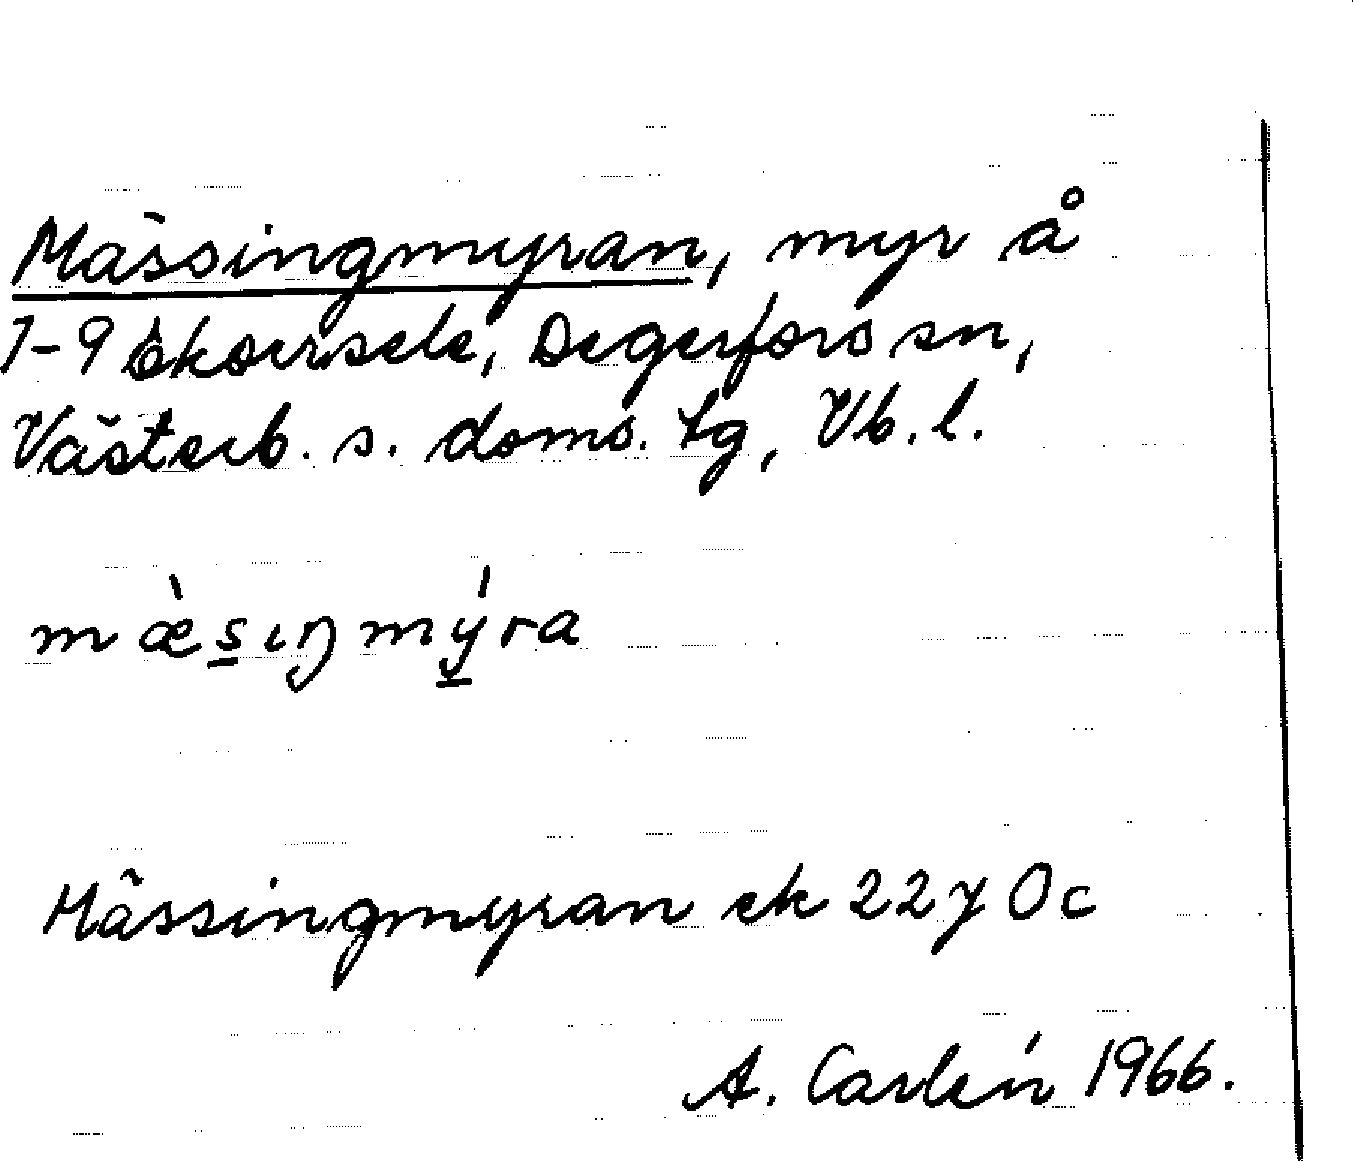 Mässingmyran, myr å
1-9 Ekorrsele, Degerfors sn,
Västerb. s. doms. tg, Vb. l.
mæ̀s̱ıŋmý̱ra
Mässingmyran ek 22 y 0 c
A. Carlén 1966.